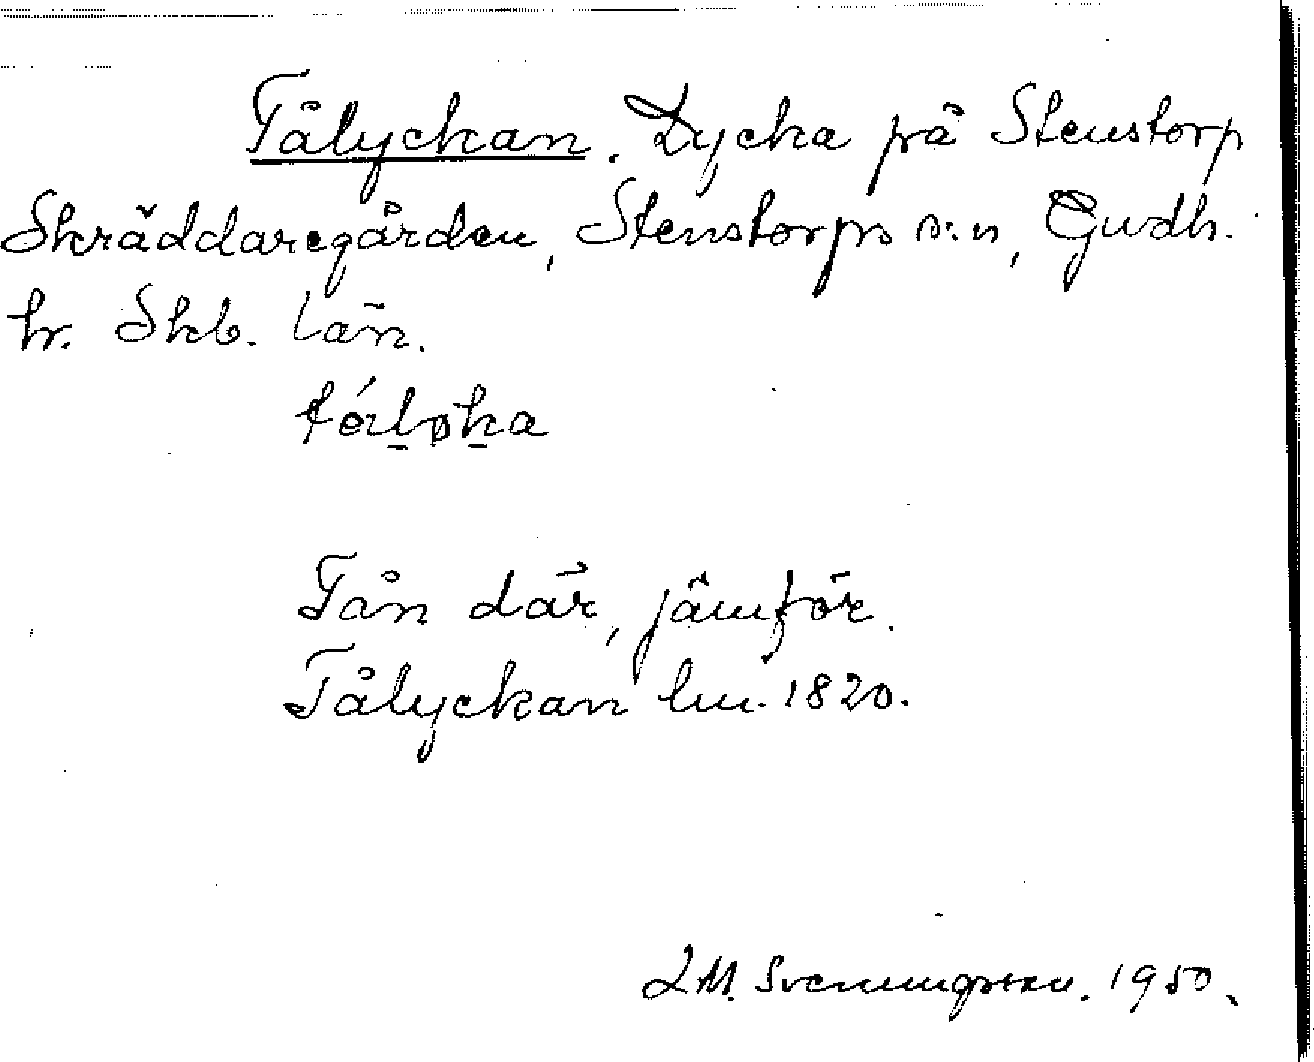 Tålyckan. Lycka på Stenstorp
Skräddaregården, Stenstorps s:n, Gudh.
hr. Skb. län.
Tån där, jämför.
Tålyckan lm. 1820.
L M. Svenungsson. 1950.